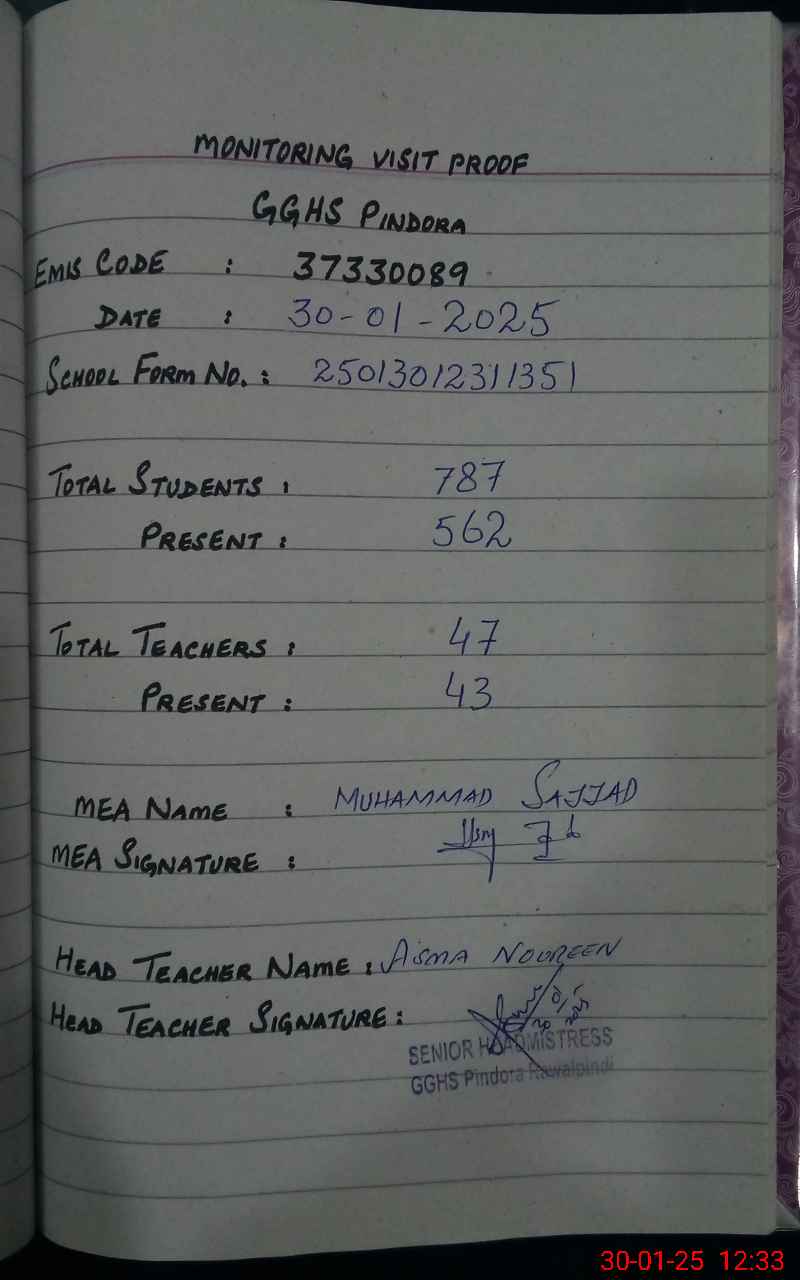 MONITORING VISIT PROOF
GGHS PINDORA
EMIS CODE : 37330089
DATE : 30-01-2025
SCHOOL FORM NO. : 25013012311351
TOTAL STUDENTS : 787
PRESENT : 562
TOTAL TEACHERS : 47
PRESENT : 43
MEA NAME : MUHAMMAD SAJJAD
MEA SIGNATURE :
HEAD TEACHER NAME : ASMA NOUREEN
HEAD TEACHER SIGNATURE :
SENIOR HEADMISTRESS
GGHS Pindora Rawalpindi
30-01-25 12:33